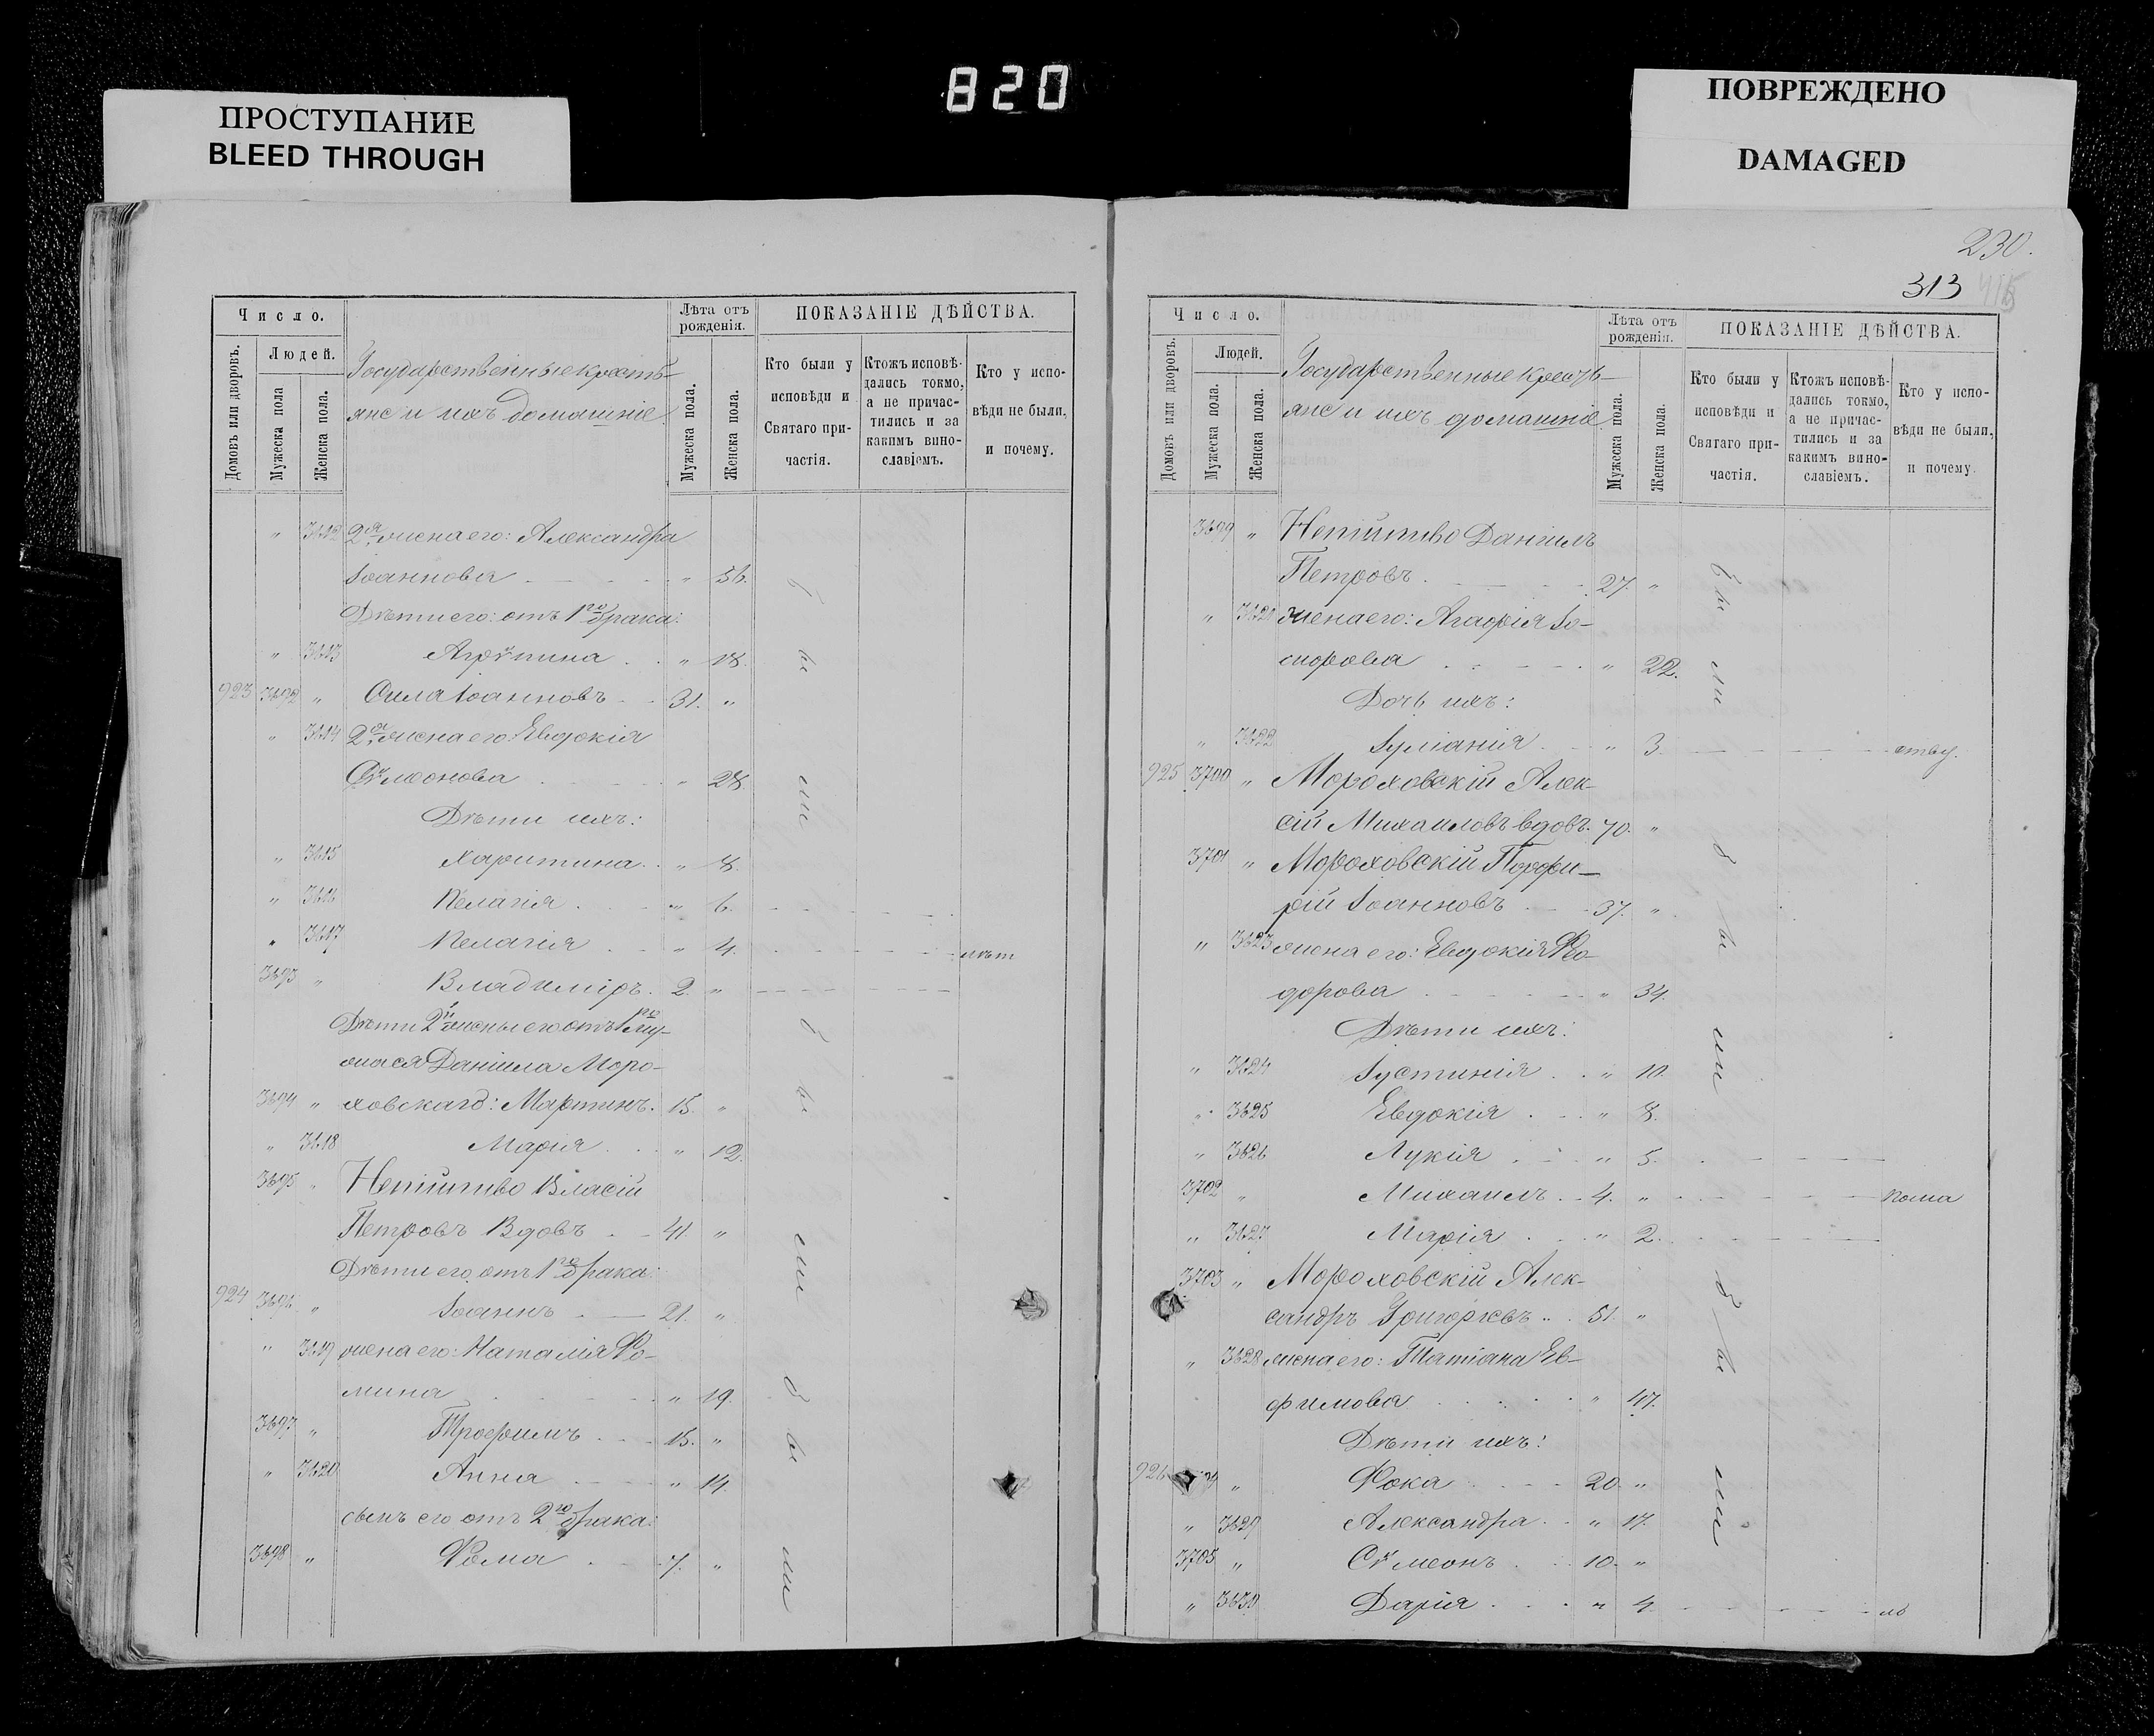 820
ПРОСТУПАНИЕ
BLEED THROUGH
ПОВРЕЖДЕНО
DAMAGED
Число.
Домовъ или дворовъ.
Людей.
Мужеска пола
Женска пола.
Государственные кресть-
яне и ихъ домашніе.
Лѣта отъ рожденія.
Мужеска пола.
Женска пола.
ПОКАЗАНІЕ ДѢЙСТВА.
Кто были у исповѣди и Святаго при-частія.
Ктожъ исповѣ-дались токмо, а не причас-тились и за какимъ вино-славіемъ.
Кто у испо-вѣди не были, и почему.
" 3612 2я жена его: Александра
Іоаннова " 36.
Дѣти его: отъ 1го брака:
" 3613 Агрѵпина " 18.
923 3692 " Сила Іоанновъ 31. "
" 3614 2я жена его Евдокія
Сѵмеонова " 28.
Дѣти ихъ:
" 3615 Харитина " 8.
" 3616 Пелагія " 6.
" 3617 Пелагія " 4.
3693 " Владиміръ 2. "
Дѣти 2й жены его отъ 1го му-
жа ея Даніила Моро-
3694 " ховскаго: Мартинъ. 15. "
" 3618 Марія " 12.
3695 " Непійпиво Власій
Петровъ Вдовъ 41. "
Дѣти его отъ 1го брака:
924 3696 " Іоаннъ 21. "
" 3619 жена его: Наталія Ѳо-
мина " 19.
3697 " Трофимъ 15. "
" 3620 Анна " 14.
сынъ его отъ 2го брака:
3698 " Ѳома 7. "
бы
ли
бы
ли
бы
ли
230.
313
Число.
Домовъ или дворовъ.
Людей.
Мужеска пола.
Женска пола.
Государственные кресть-
яне и ихъ домашніе.
Лѣта отъ рожденія.
Мужеска пола.
Женска пола.
ПОКАЗАНІЕ ДѢЙСТВА.
Кто были у исповѣди и Святаго при-частія.
Ктожъ исповѣ-дались токмо, а не причас-тились и за какимъ вино-славіемъ.
Кто у испо-вѣди не были, и почему.
3699 " Непійпиво Даніилъ
Петровъ 27. "
" 3621 жена его: Агафія Іо-
" 22.
Дочь ихъ:
" 3622 Іуліанія " 3.
925 3700 " Мороховскій Алек-
сій Михаиловъ вдовъ. 70. "
3701 " Мороховскій Порфи-
рій Іоанновъ 37. "
" 3623 жена его: Евдокія Ѳео-
дорова " 34.
Дѣти ихъ:
" 3624 Іустинія " 10.
" 3625 Евдокія " 8.
" 3626 Лукія " 5.
3702 " Михаилъ 4. "
" 3627 Марія " 2.
3703 " Мороховскій Алек-
сандръ Григорьевъ 51. "
" 3628 жена его: Татіана Ев-
фимова " 47.
Дѣти ихъ:
926 " Ѳока 20. "
" 3629 Александра " 17.
3705 " Сѵмеонъ 10. "
" 3630 Дарія " 4.
бы
ли
бы
ли
бы
ли